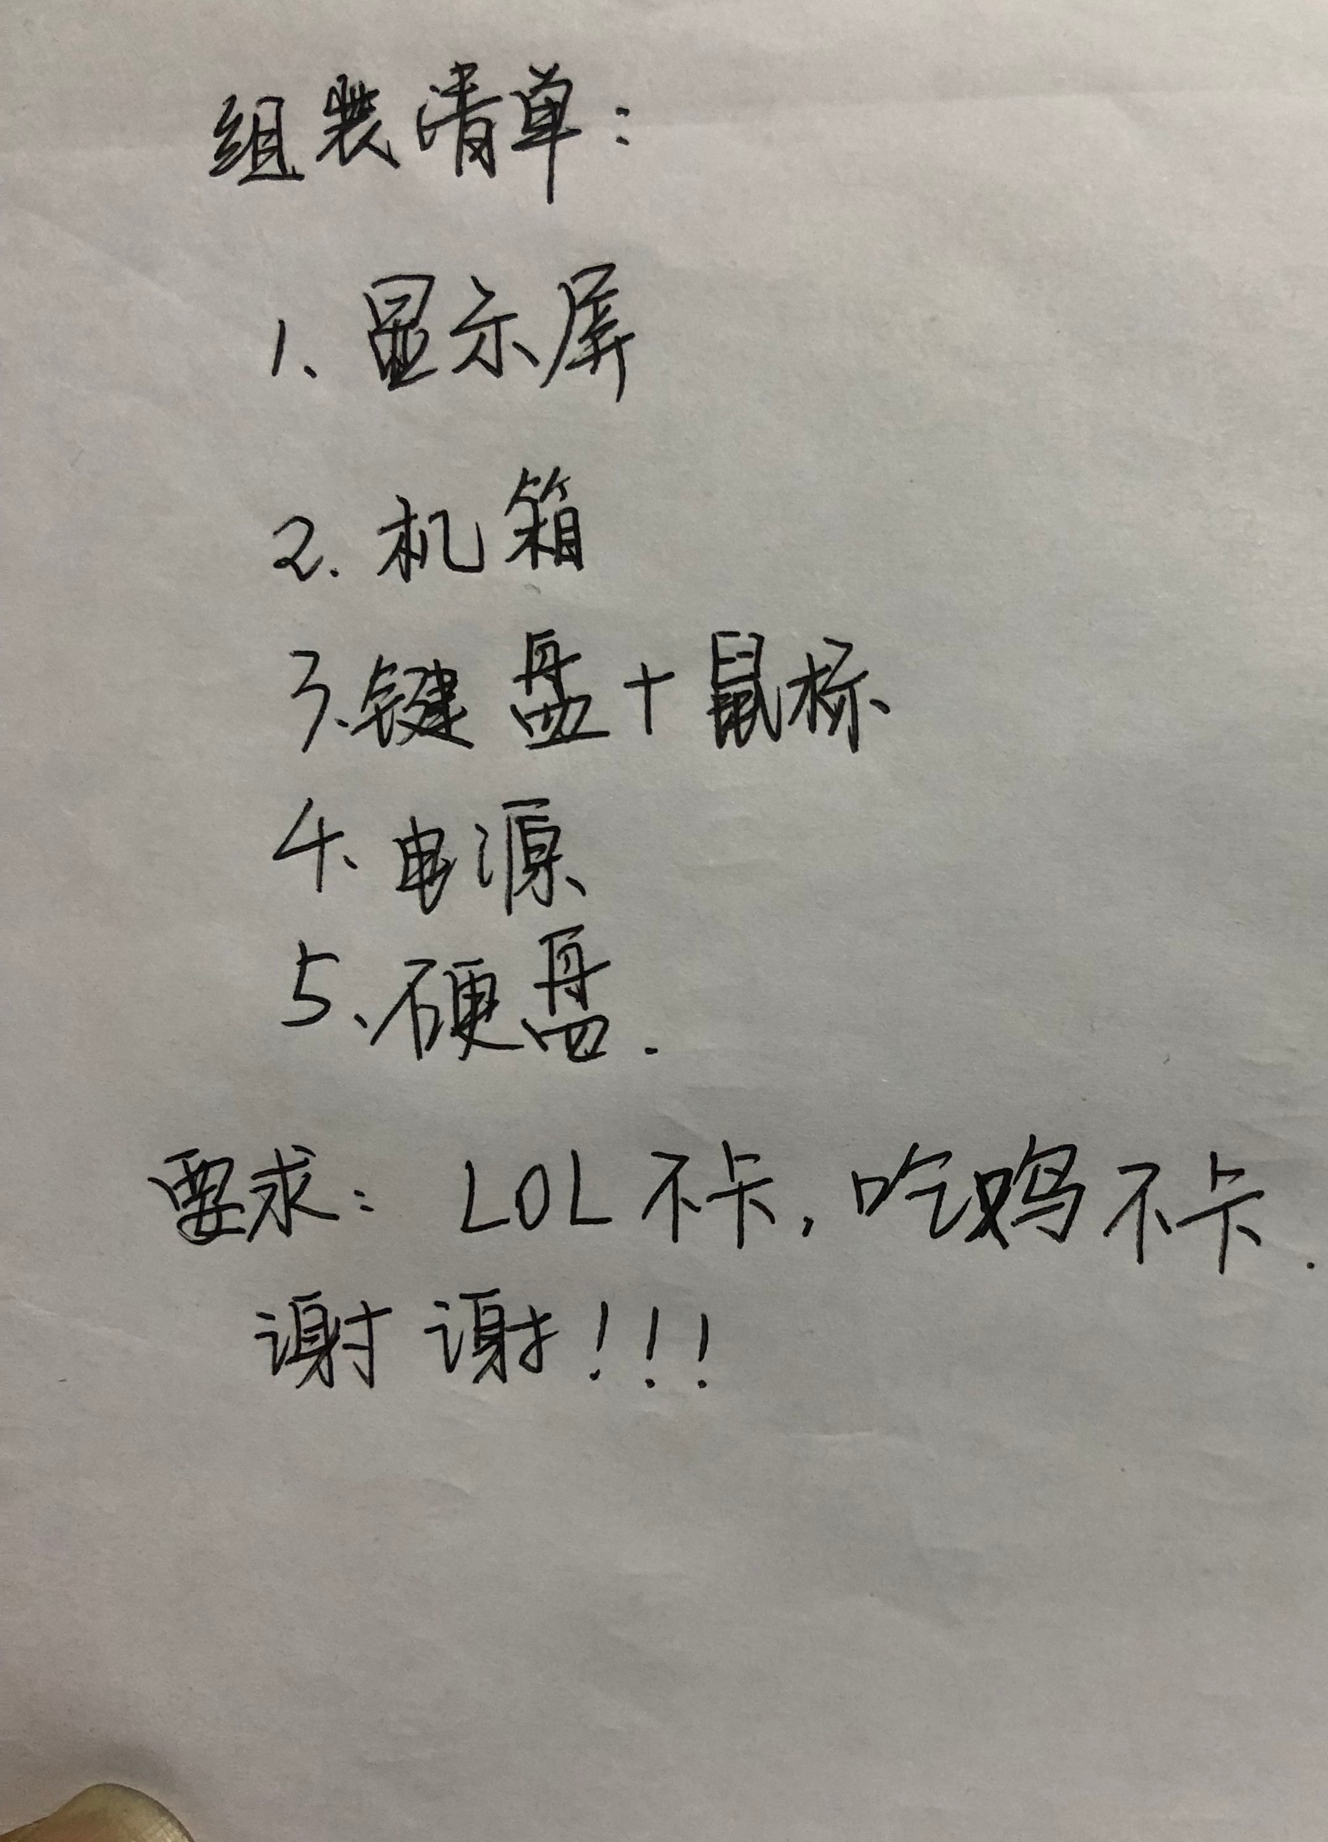 组装清单：
1、显示屏
2.机箱
3、键盘+鼠标
4、电源
5、硬盘.
要求：LOL不卡，吃鸡不卡.
谢谢！！！